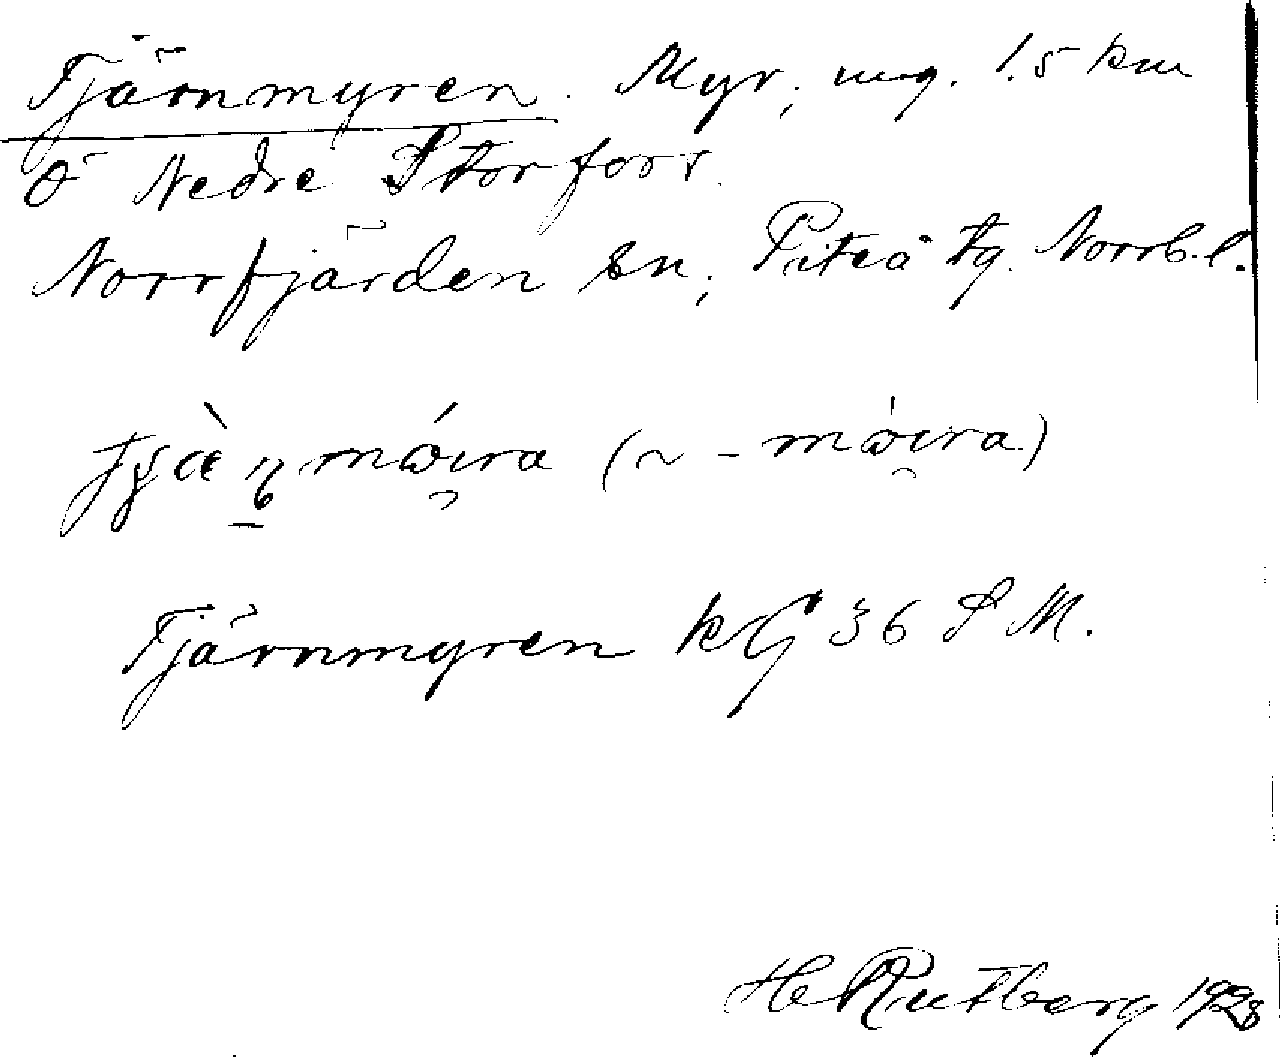 Tjärnmyren. Myr, ung. 1.5 km
Ö Nedre Storfors.
Norrfjärden sn, Piteå tg. Norrb. l.
(~ -
Tjärnmyren kG 36 S M.
H Rutberg 1928